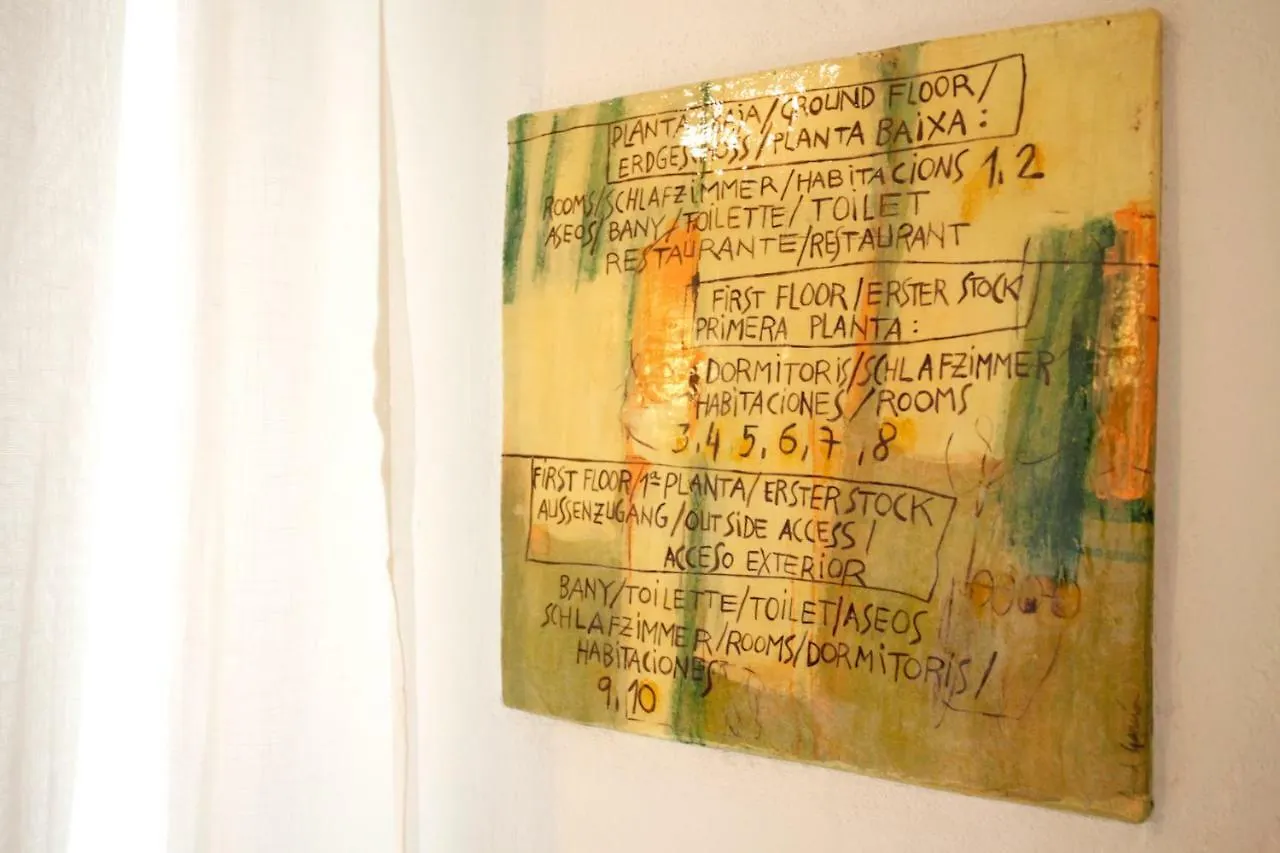 PLANTA BAJA/GROUND FLOOR/
ERDGESCHOSS/PLANTA BAIXA:
ROOMS/SCHLAFZIMMER/HABITACIONS 1, 2
ASEOS/BANY/TOILETTE/TOILET
RESTAURANTE/RESTAURANT
FIRST FLOOR/ERSTER STOCK
PRIMERA PLANTA:
DORMITORIS/SCHLAFZIMMER
HABITACIONES/ROOMS
3, 4 5, 6, 7, 8
FIRST FLOOR/1ª PLANTA/ERSTER STOCK
AUSSENZUGANG/OUTSIDE ACCESS/
ACCESO EXTERIOR
BANY/TOILETTE/TOILET/ASEOS
SCHLAFZIMMER/ROOMS/DORMITORIS/
HABITACIONES
9, 10